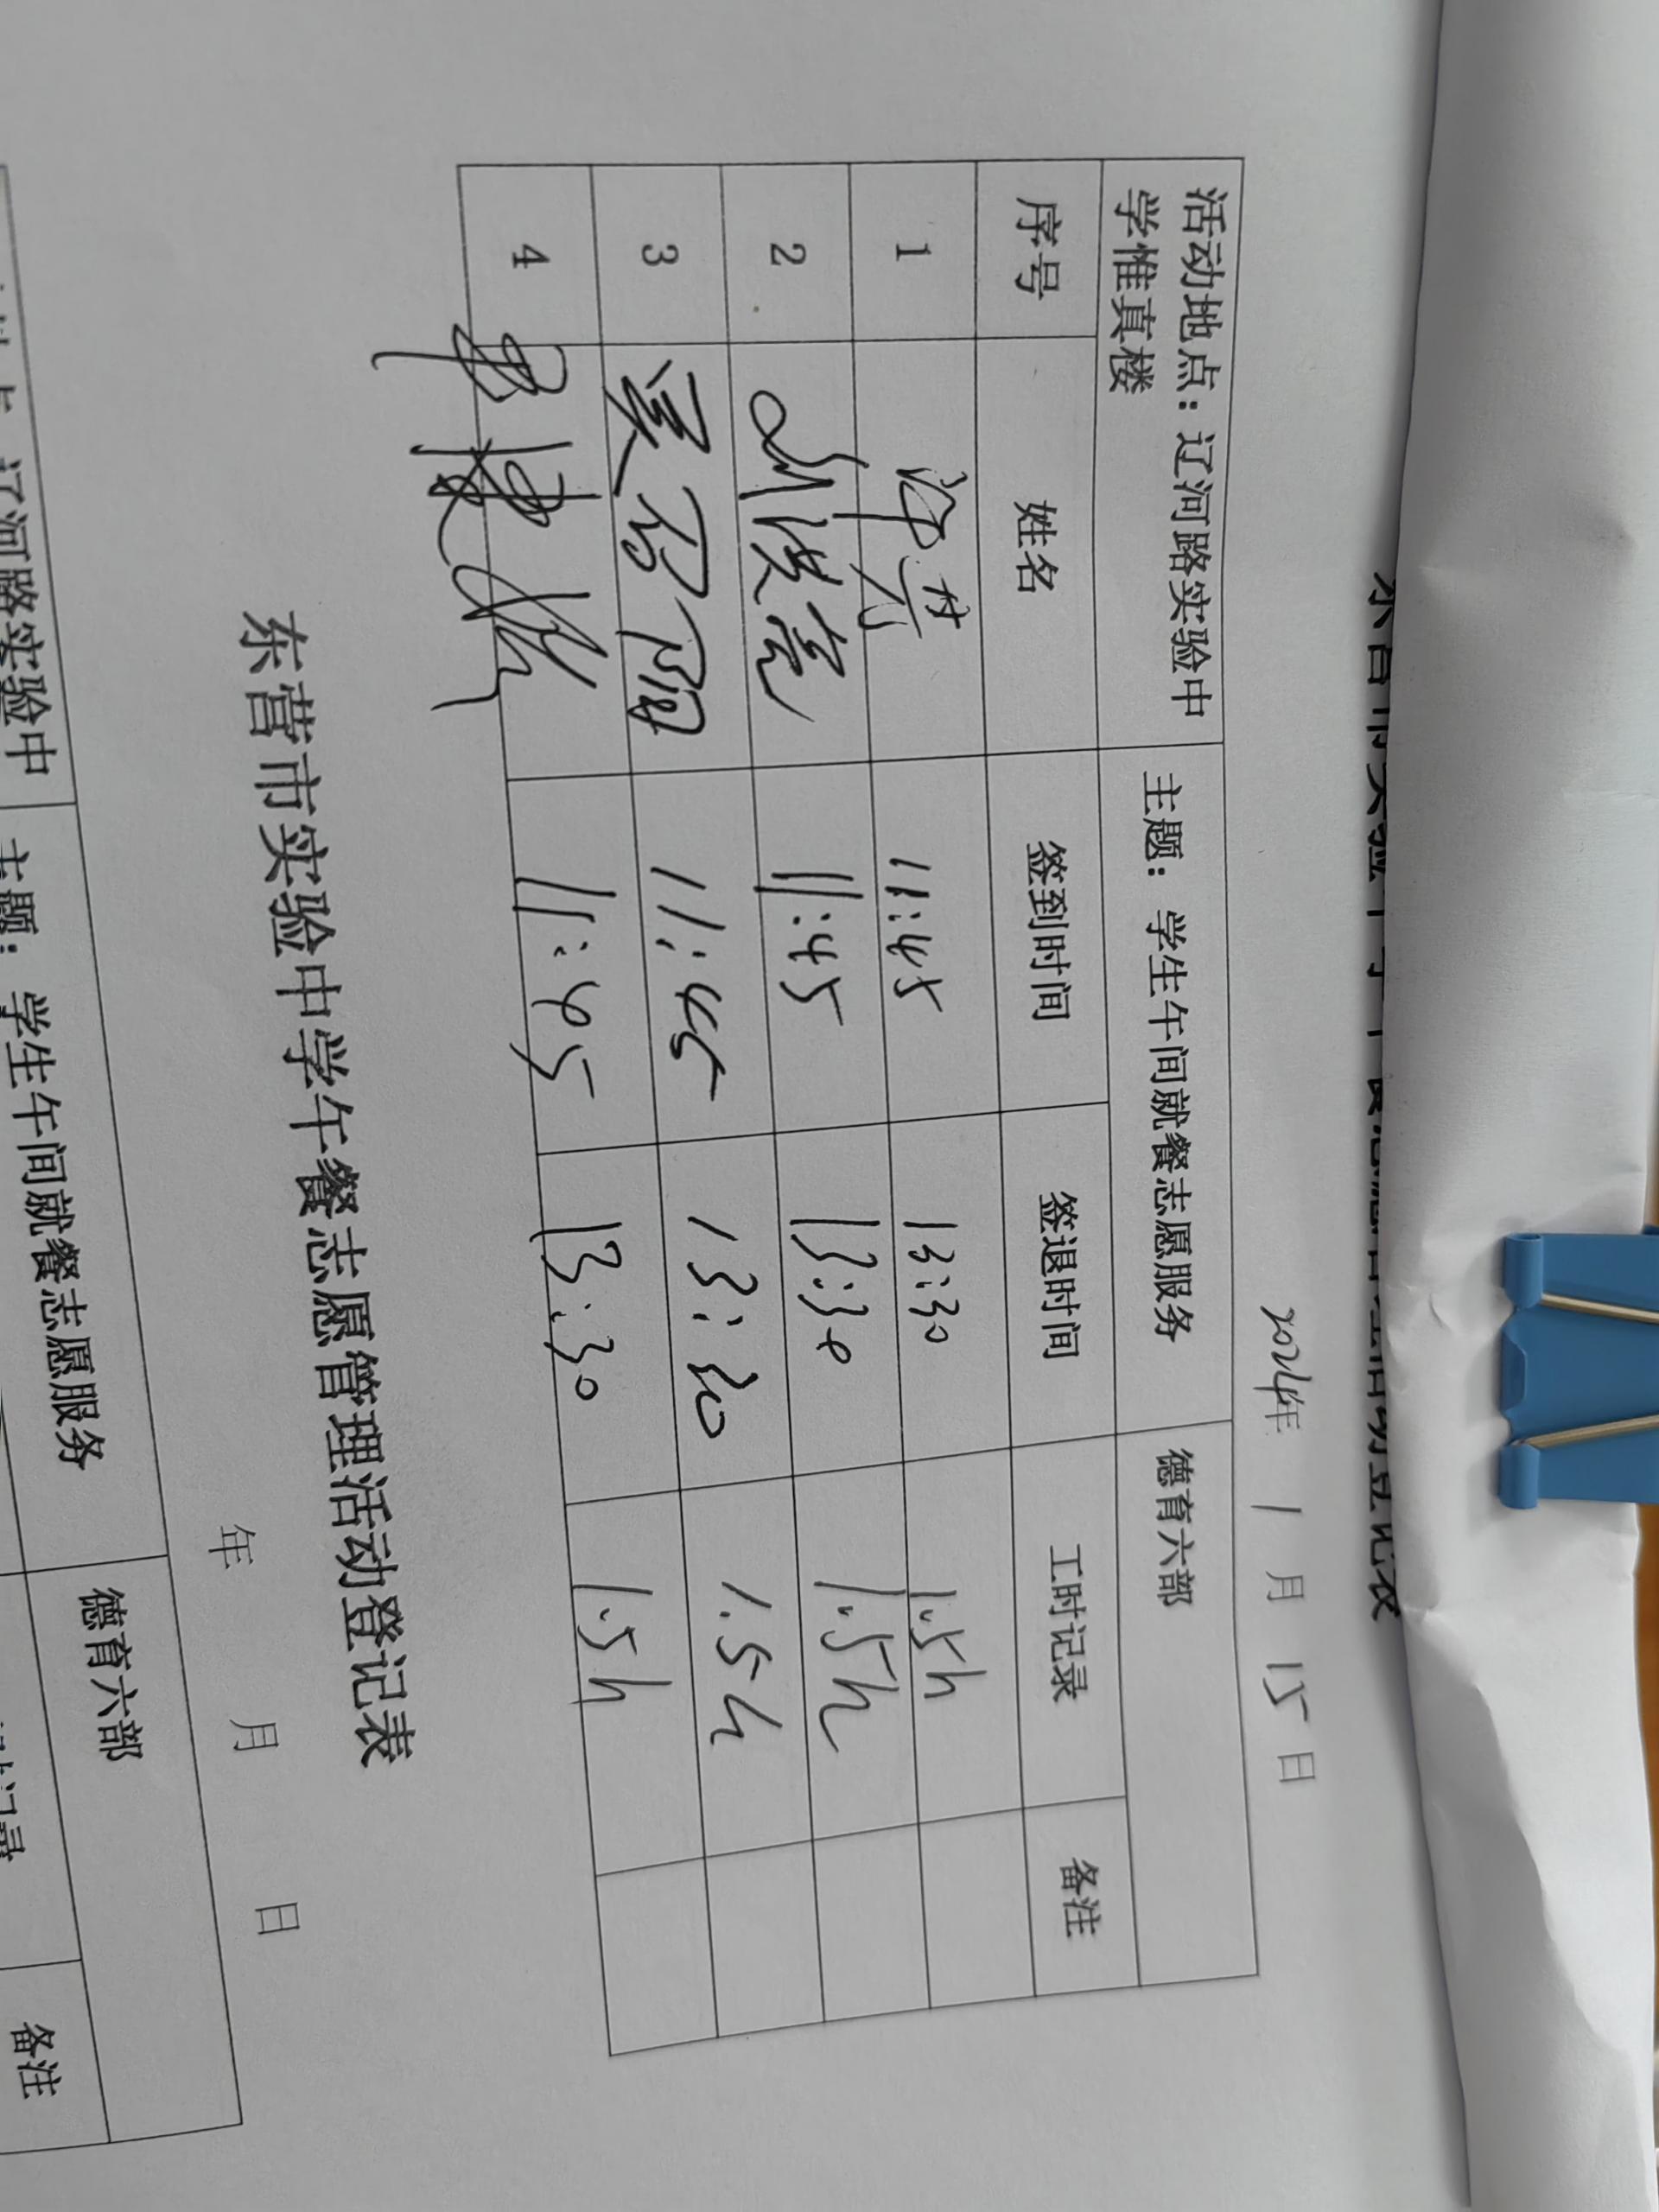 2024年 1 月 15 日
活动地点：辽河路实验中学惟真楼 主题：学生午间就餐志愿服务 德育六部
序号 姓名 签到时间 签退时间 工时记录 备注
1 11:45 13:30 1.5h
2 11:45 13:30 1.5h
3 11:45 13:30 1.5h
4 11:45 13:30 1.5h
东营市实验中学午餐志愿管理活动登记表
年 月 日
辽河路实验中 主题：学生午间就餐志愿服务 德育六部
备注